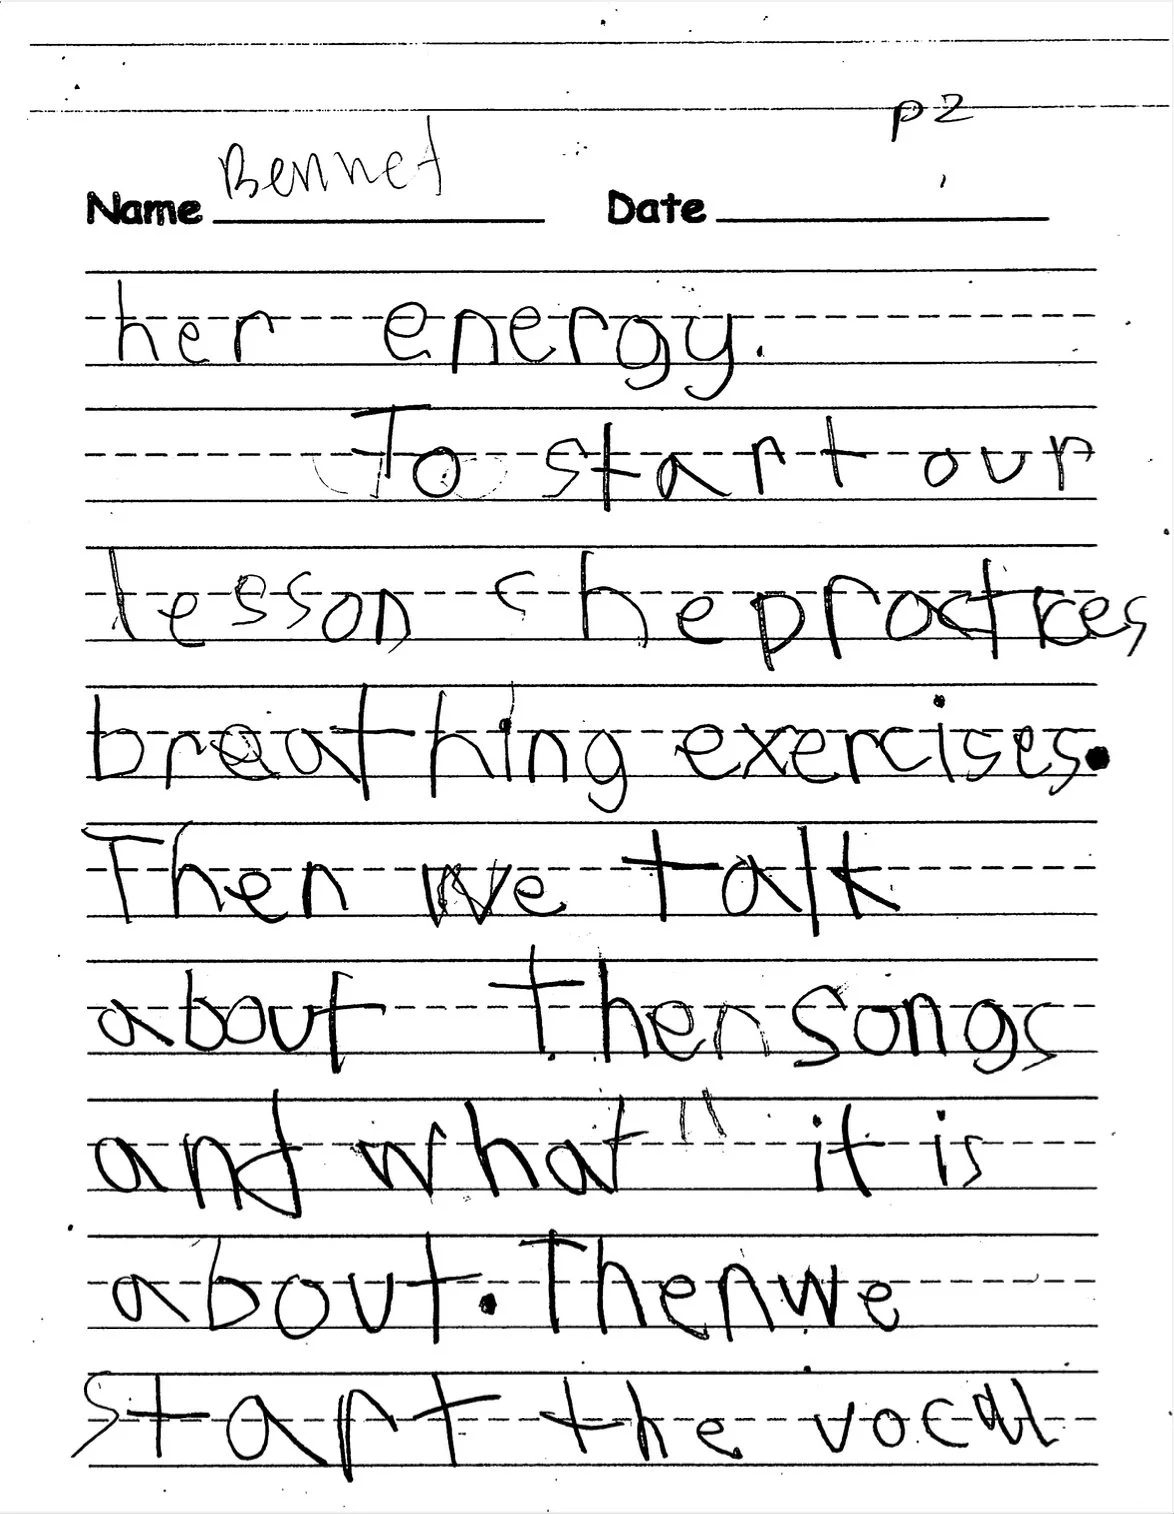 p2
Name Bennet Date
her energy.
To start our
lesson she practices
breathing exercises.
Then we talk
about then songs
and what it is
about. Then we
start the vocal